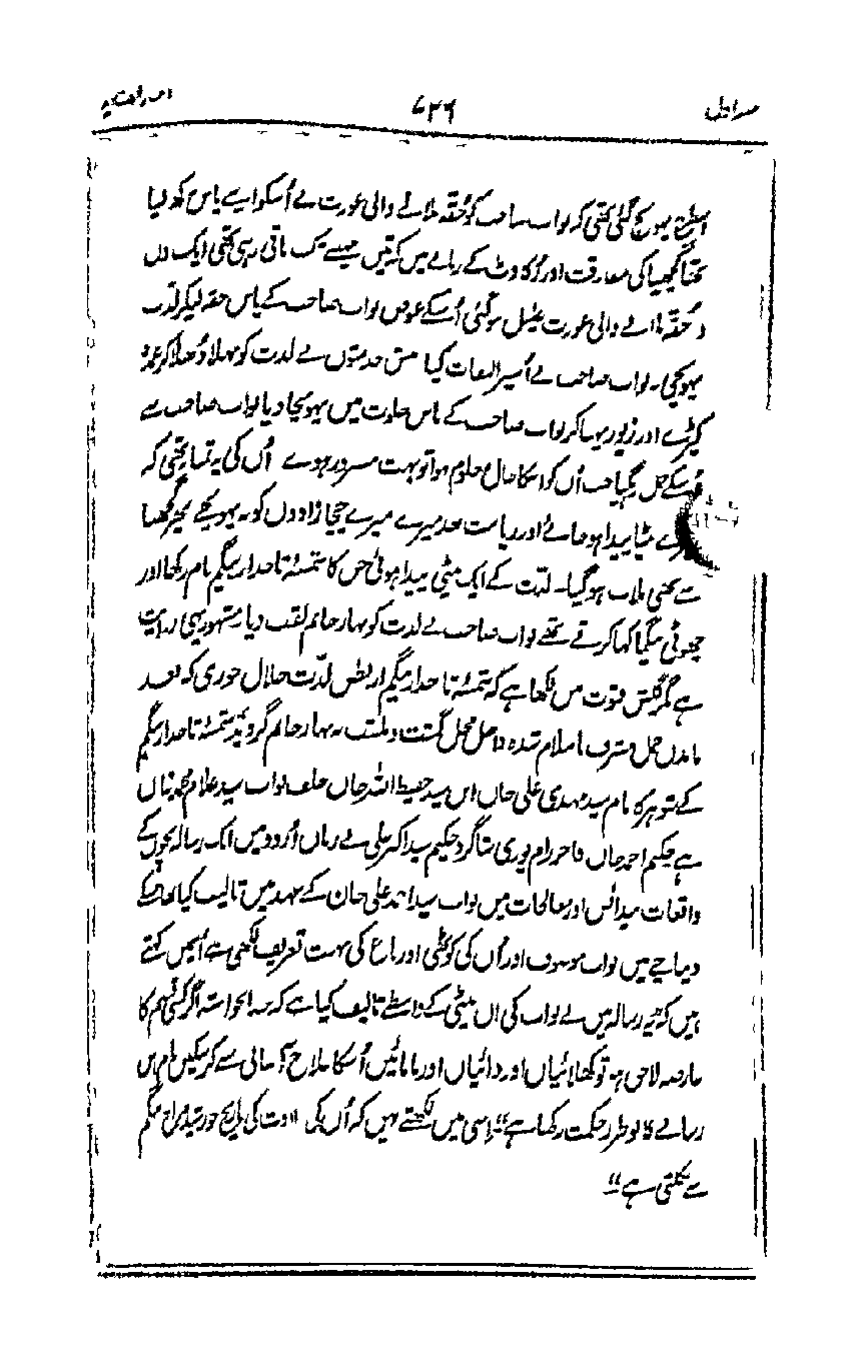 ۷۳۶
اسطرح پہونچ گئی تھی کہ نواب صاحب کو حُقہ پلانے والی عورت نے اُسکو اپنے پاس رکھ لیا
تھا گھسیا کی مفارقت اور رکاوٹ کے زمانے میں کنیزیں جیسے تک باقی رہی تھی ایک دن
حُقہ پلانے والی عورت علیل ہوگئی اُسکے عوض نواب صاحب کے پاس حقہ لیکر لذت
پہونچی۔ نواب صاحب نے اُسپر التفات کیا مغل خدمتوں نے لذت کو نہلا دُھلا کر عمدہ
کپڑے اور زیور پہنا کر نواب صاحب کے پاس خلوت میں پہونچا دیا نواب صاحب سے
اُسکے حمل رہگیا جب اُن کو اسکا حال معلوم ہوا تو بہت مسرور ہوے اُن کی یہ تمنا تھی کہ
میرے بیٹا پیدا ہو جائے اور ریاست بعد میرے میرے چچا زادوں کو نہ پہونچے پھر گھسیا
سے بھی ملاپ ہوگیا۔ لذت کے ایک بیٹی پیدا ہوئی جس کا شمسہ تاجدار بیگم نام رکھا اور
چھوٹی بیگما کہا کرتے تھے نواب صاحب نے لذت کو بہار خانم لقب دیا مشہور یہی روایت
ہے مگر گلشن فتوت میں لکھا ہے کہ شمسہ تاجدار بیگم از بطن لذت حلال خوری کہ بعد
ماندن حمل مشرف اسلام شدہ داخل محل گشت و ملقب بہ بہار خانم گردید شمسہ تاجدار بیگم
کے شوہر کا نام سید مہدی علی خاں ابن سید حفیظ اللہ خاں خلف نواب سید غلام محمد خاں
ہے حکیم احمد خاں فاخر رام پوری شاگرد حکیم سید اکبر علی نے زبان اُردو میں ایک رسالہ بچوں کے
واقعات پیدائش اور معالجات میں نواب سید احمد علی خان کے عہد میں تالیف کیا تھا جسکے
دیباچے میں نواب موصوف اور اُن کی کوٹھی اور باغ کی بہت تعریف لکھی ہے اُسمیں کہتے
ہیں کہ یہ رسالہ میں نے نواب کی اِن بیٹی کے واسطے تالیف کیا ہے کہ خدانخواستہ اگر کسی قسم کا
عارضہ لاحق ہو تو کھلائیاں اور دائیاں اور مامائیں اُسکا علاج آسانی سے کر سکیں نام اس
رسالے کا نوطرز حکمت رکھا ہے“ اِسی میں لکھتے ہیں کہ اُن کی ولادت کی تاریخ خورشید مزاج بیگم
سے نکلتی ہے“